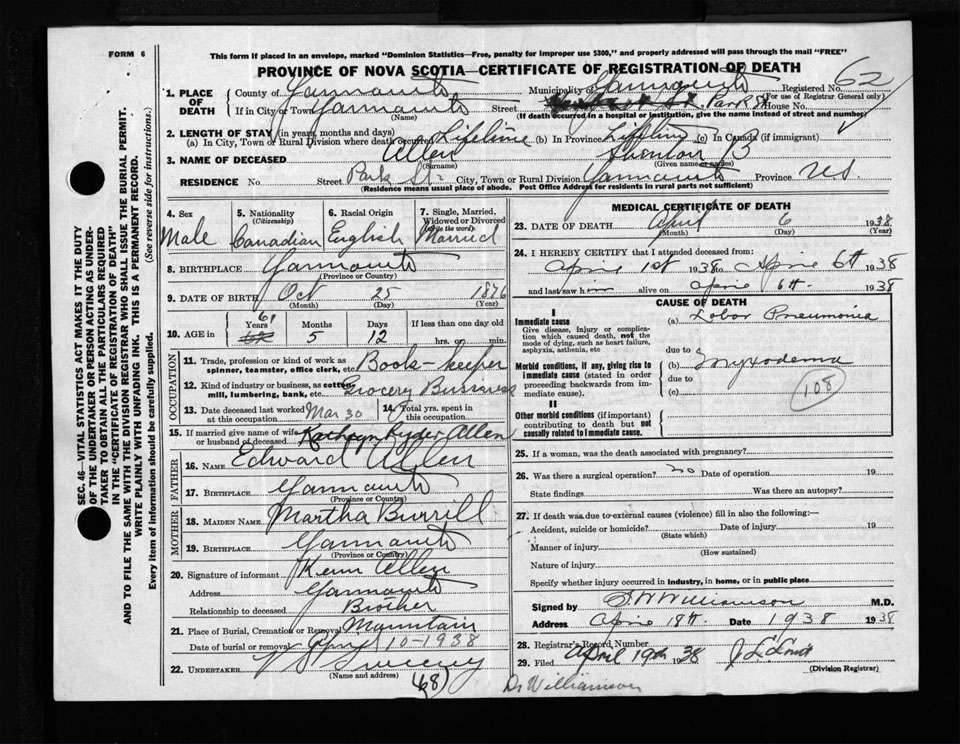 FORM 6
This form if placed in an envelope, marked "Dominion Statistics—Free, penalty for improper use $300," and properly addressed will pass through the mail "FREE"
PROVINCE OF NOVA SCOTIA—CERTIFICATE OF REGISTRATION OF DEATH
1. PLACE OF DEATH County of Yarmouth Municipality of Yarmouth Registered No. 62
(For use of Registrar General only)
If in City or Town Yarmouth Street Park St House No.
(Name) (If death occurred in a hospital or institution, give the name instead of street and number)
2. LENGTH OF STAY (in years, months and days)
(a) In City, Town or Rural Division where death occurred Lifetime (b) In Province Lifetime (c) In Canada (if immigrant)
3. NAME OF DECEASED Allen B
(Surname) (Given name or names)
RESIDENCE No. Street Park St City, Town or Rural Division Yarmouth Province N.S.
(Residence means usual place of abode. Post Office Address for residents in rural parts not sufficient)
4. Sex Male
5. Nationality (Citizenship) Canadian
6. Racial Origin English
7. Single, Married, Widowed or Divorced (write the word) Married
8. BIRTHPLACE Yarmouth
(Province or Country)
9. DATE OF BIRTH Oct 25 1876
(Month) (Day) (Year)
10. AGE in 61 Years 5 Months 12 Days If less than one day old
hrs. or min.
OCCUPATION
11. Trade, profession or kind of work as spinner, teamster, office clerk, etc. Book-keeper
12. Kind of industry or business, as cotton mill, lumbering, bank, etc. Grocery Business
13. Date deceased last worked at this occupation Mar 30
14. Total yrs. spent in this occupation
15. If married give name of wife or husband of deceased Kathryn Ryder Allen
FATHER
16. NAME Edward Allen
17. BIRTHPLACE Yarmouth
(Province or Country)
MOTHER
18. MAIDEN NAME Martha Burrill
19. BIRTHPLACE Yarmouth
(Province or Country)
20. Signature of informant Allen
Address Yarmouth
Relationship to deceased Brother
21. Place of Burial, Cremation or Removal Mountain
Date of burial or removal April 10-1938
22. UNDERTAKER Sweeny
(Name and address)
(68)
Dr Williamson
MEDICAL CERTIFICATE OF DEATH
23. DATE OF DEATH April 6 1938
(Month) (Day) (Year)
24. I HEREBY CERTIFY that I attended deceased from:
April 1st 1938 to April 6th 1938
and last saw him alive on April 6th 1938
CAUSE OF DEATH
I
Immediate cause (a) Lobar Pneumonia
Give disease, injury or complication which caused death, not the mode of dying, such as heart failure, asphyxia, asthenia, etc
due to
Morbid conditions, if any, giving rise to immediate cause (stated in order proceeding backwards from immediate cause).
(b) Myxodema
due to
(c)
108
II
Other morbid conditions (if important) contributing to death but not causally related to immediate cause.
25. If a woman, was the death associated with pregnancy?
26. Was there a surgical operation? no Date of operation 19
State findings Was there an autopsy?
27. If death was due to external causes (violence) fill in also the following:—
Accident, suicide or homicide? Date of injury 19
(State which)
Manner of injury
(How sustained)
Nature of injury
Specify whether injury occurred in industry, in home, or in public place
Signed by Williamson M.D.
Address April 18th. Date 1938 1938
28. Registrar's Record Number
29. Filed April 19th 1938
(Division Registrar)
SEC. 46—VITAL STATISTICS ACT MAKES IT THE DUTY
OF THE UNDERTAKER OR PERSON ACTING AS UNDERTAKER TO OBTAIN ALL THE PARTICULARS REQUIRED
IN THE "CERTIFICATE OF REGISTRATION OF DEATH"
AND TO FILE THE SAME WITH THE DIVISION REGISTRAR WHO SHALL ISSUE THE BURIAL PERMIT.
WRITE PLAINLY WITH UNFADING INK. THIS IS A PERMANENT RECORD.
Every item of information should be carefully supplied. (See reverse side for instructions.)